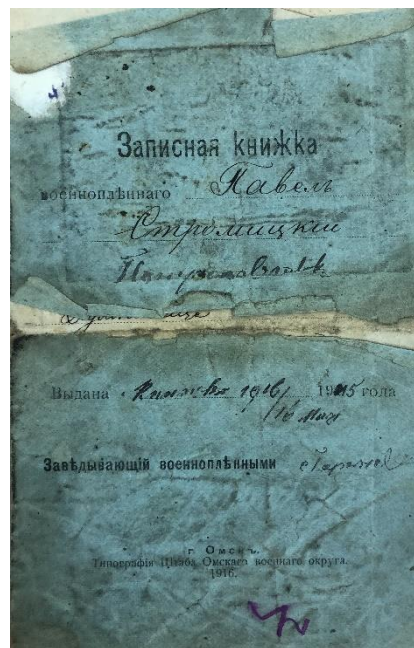 Записная книжка
военноплѣннаго Павелъ
Стромицкій
Выдана 1916 1915 года
16 мая
Завѣдывающій военноплѣнными
г. Омскъ.
Типографія Штаба Омскаго военнаго округа.
1916.